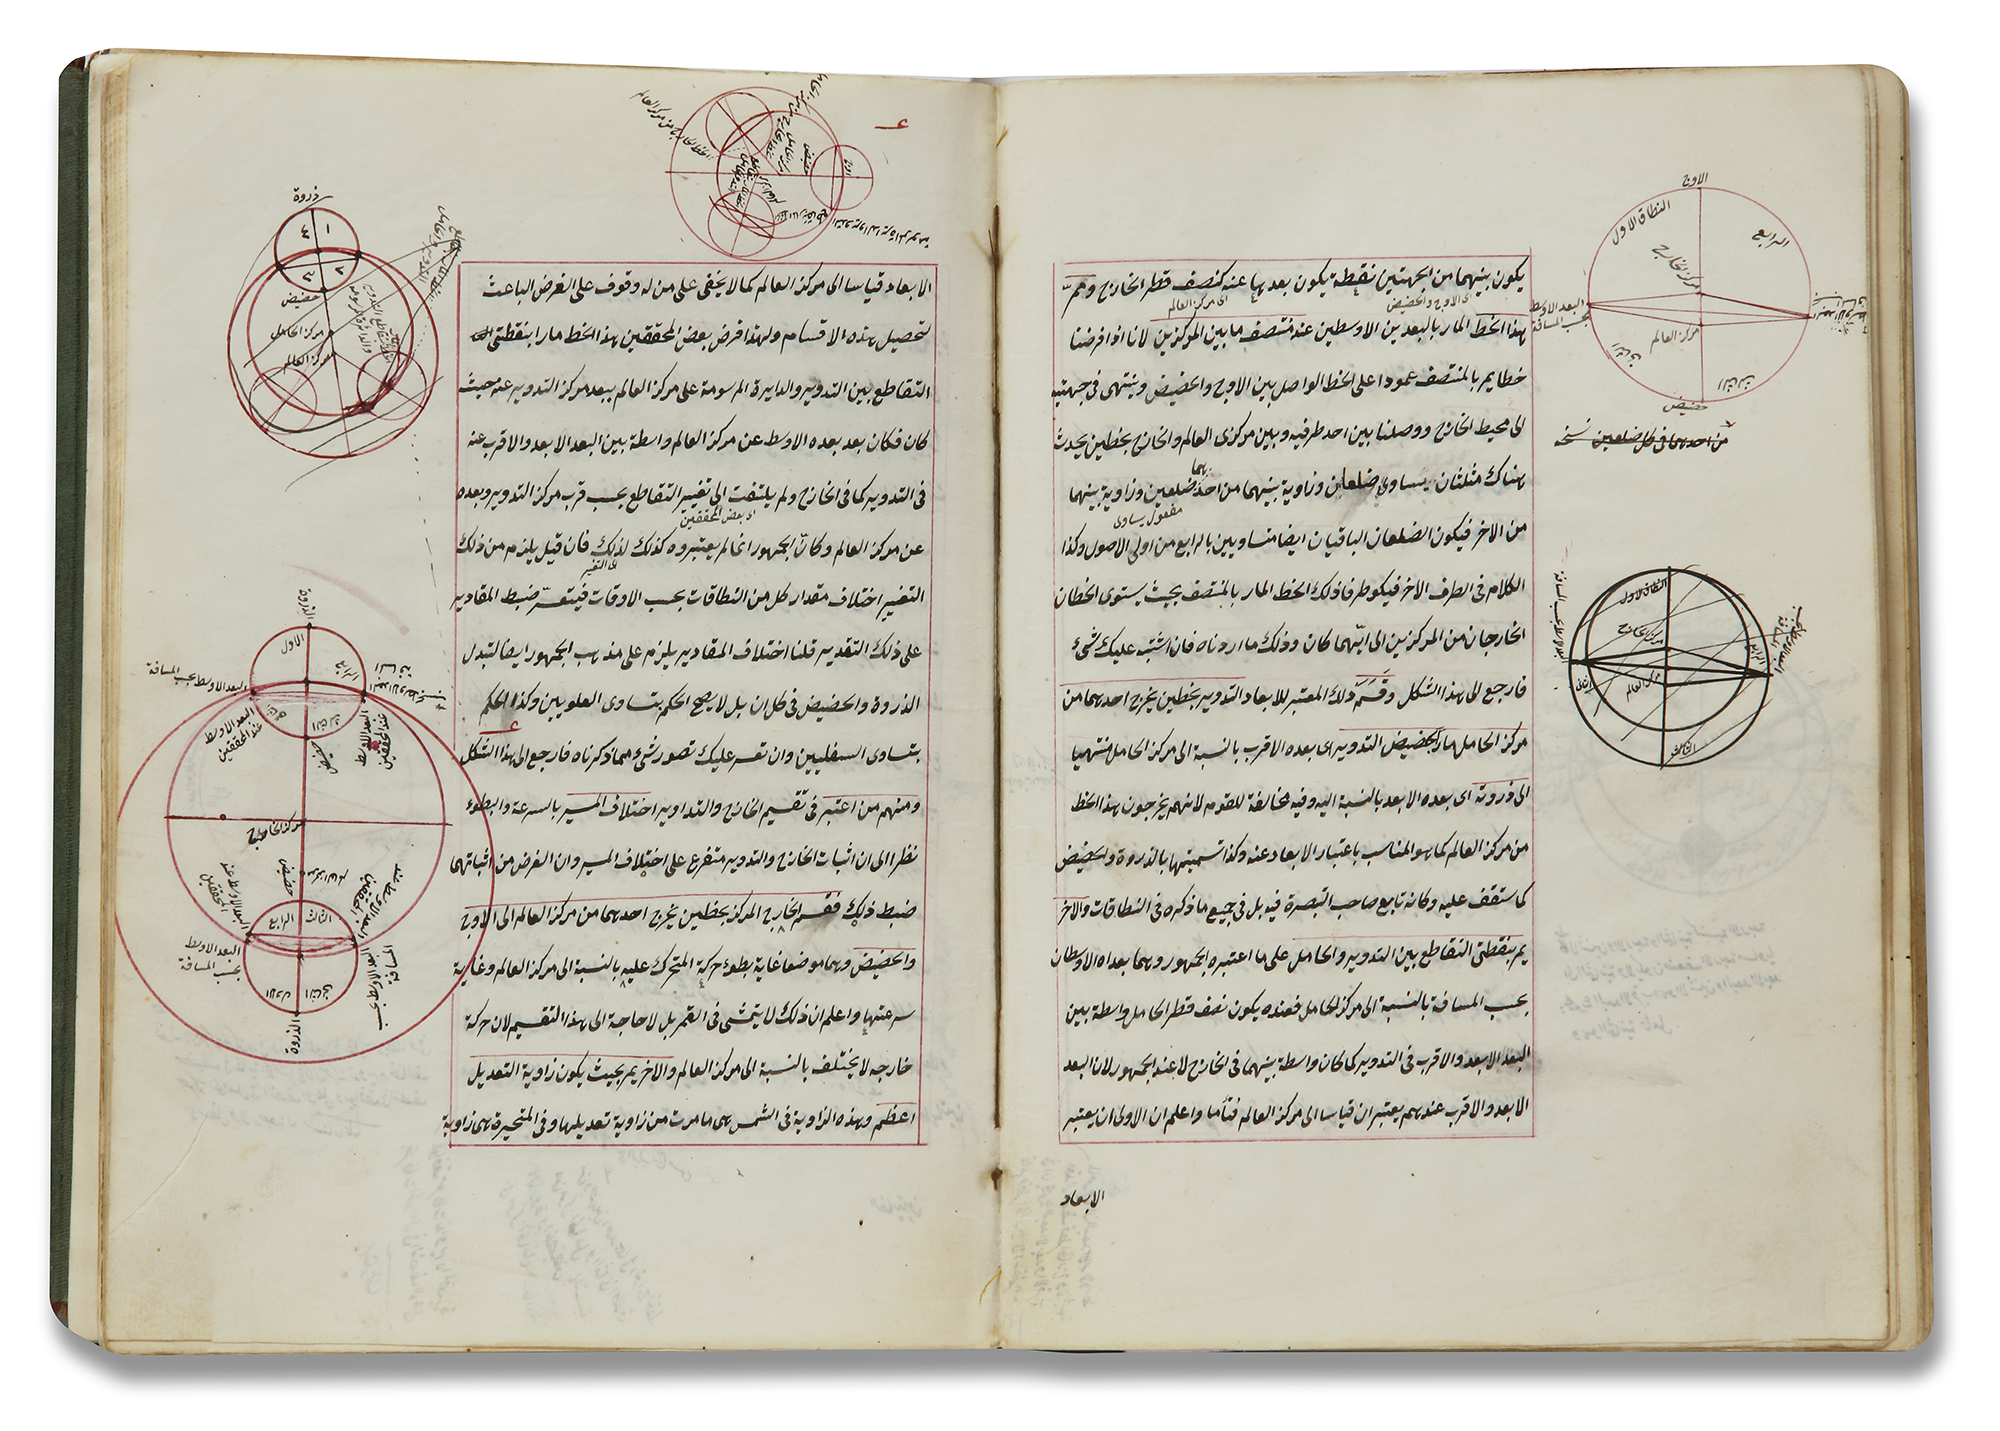 يكون بينهما من الجهتين نقطة يكون بعدها عنه كنصف قطر الخارج وهم
الى الاوج والحضيض
الى مركز العالم
بهذا الخط المار بالبعدين الاوسطين عند منتصف ما بين المركزين لانا اذا فرضنا
خطا يمر بالمنتصف عمودا على الخط الواصل بين الاوج والحضيض وينتهى فى جهتيه
الى محيط الخارج ووصلنا بين احد طرفيه وبين مركزى العالم والخارج بخطين يحدث
هناك مثلثان يساوى ضلعان وزاوية بينهما من احدهما ضلعين وزاوية بينهما
مفعول يساوى
من الاخر فيكون الضلعان الباقيان ايضا متساويين بالرابع من اولى الاصول وكذا
الكلام فى الطرف الاخر فيكون طرفا ذلك الخط المار بالمنتصف بحيث يستوى الخطان
الخارجان من المركزين الى ايهما كان وذلك ما اردناه فان اشتبه عليك شئ
فارجع الى هذا الشكل وقسم ذلك المعتبر للابعاد التدوير بخطين يخرج احدهما من
مركز الحامل مارا بحضيض التدوير اى بعده الاقرب بالنسبة الى مركز الحامل منتهيا
الى ذروته اى بعده الابعد بالنسبة اليه وفيه مخالفة للقوم لانهم يخرجون هذا الخط
من مركز العالم كما هو المناسب باعتبار الابعاد عنه وكذا تسميتها بالذروة والحضيض
كما ستقف عليه وكانه تابع صاحب التبصرة فيه بل فى جميع ما ذكره فى النطاقات والاخر
يمر بنقطتى التقاطع بين التدوير والحامل على ما اعتبره الجمهور وهما بعداه الاوسطان
بحسب المسافة بالنسبة الى مركز الحامل فعنده يكون نصف قطر الحامل واسطة بين
البعد الابعد والاقرب فى التدوير كما كان واسطة بينهما فى الخارج لا عند الجمهور لان البعد
الابعد والاقرب عندهم يعتبران قياسا الى مركز العالم فتأمل واعلم ان الاولى ان يعتبر
الابعاد
الاوج
النطاق الاول
الرابع
مركز الخارج
البعد الاوسط
بحسب المسافة
مركز العالم
الثانى
الثالث
حضيض
من احدهما فى كل ضلعين نسخه
النطاق الاول
مركز الخارج
الرابع
مركز العالم
الثانى
الثالث
الابعاد قياسا الى مركز العالم كما لا يخفى على من له وقوف على الغرض الباعث
لتحصيل هذه الاقسام ولهذا فرض بعض المحققين هذا الخط مارا بنقطتى
التقاطع بين التدوير والدايرة المرسومة على مركز العالم ببعد مركز التدوير عنه حيث
كان فكان بعد بعده الاوسط عن مركز العالم واسطة بين البعد الابعد والاقرب عنه
فى التدوير كما فى الخارج ولم يلتفت الى تغيير التقاطع بحسب قرب مركز التدوير وبعده
اى بعض المحققين
عن مركز العالم وكان الجمهور انما لم يعتبروه كذلك لذلك فان قيل يلزم من ذلك
التغيير اختلاف مقدار كل من النطاقات بحسب الاوقات فيتعسر ضبط المقادير
على ذلك التقدير قلنا اختلاف المقادير يلزم على مذهب الجمهور ايضا لتبدل
الذروة والحضيض فى كل ان بل لا يصح الحكم بتساوى العلويين وكذا الحكم
بتساوى السفليين وان تعسر عليك تصور شئ مما ذكرناه فارجع الى هذا الشكل
ومنهم من اعتبر فى تقسيم الخارج والتداوير اختلاف المسير بالسرعة والبطوء
نظرا الى ان اثبات الخارج والتدوير متفرع على اختلاف المسير وان الغرض من اثباتهما
ضبط ذلك فقسم الخارج المركز بخطين يخرج احدهما من مركز العالم الى الاوج
والحضيض وهما موضعا غاية بطوء حركة المتحرك عليه بالنسبة الى مركز العالم وغاية
سرعتها واعلم ان ذلك لا يتمشى فى القمر بل لا حاجة الى هذا التقسيم لان حركة
خارجه لا يختلف بالنسبة الى مركز العالم والاخر يمر بحيث يكون زاوية التعديل
اعظم وهذه الزاوية فى الشمس هى ما مرت من زاوية تعديلها وفى المتحيرة هى زاوية
ذروة
حضيض
مركز الحامل
مركز العالم
الذروة
الاول
الرابع
البعد الاوسط بحسب المسافة
البعد الاوسط
عند المحققين
الثانى
الثالث
حضيض
البعد الاوسط
عند المحققين
مركز الحامل
مركز العالم
حضيض
البعد الاوسط عند
المحققين
الثالث
الرابع
البعد الاوسط
بحسب المسافة
الثانى
الاول
الذروة